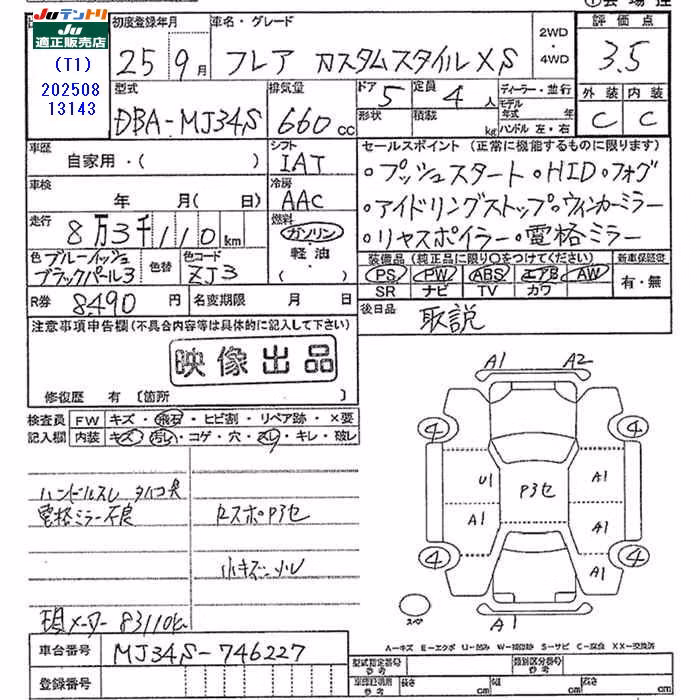 ①会場控
Juテントリ
Ju
適正販売店
(T1)
202508
13143
初度登録年月
25 9月
車名・グレード
フレア カスタムスタイル XS
2WD
・
4WD
評価点
3.5
外装 内装
C C
型式
DBA-MJ34S
排気量
660 cc
ドア 5
定員 4 人
形状
積載 kg
ディーラー・並行
モデル年式 年
ハンドル 左・右
車歴 自家用・( )
シフト
IAT
セールスポイント (正常に機能するものに限ります)
・プッシュスタート・HID・フォグ
・アイドリングストップ・ウィンカーミラー
・リヤスポイラー・電格ミラー
車検 年 月( 日)
冷房
AAC
走行 8万3千110km
燃料
ガソリン
・
軽油
( )
色 ブルーイッシュ
ブラックパール3
色替
色コード
ZJ3
装備品 (純正品に限り○をつけてください)
PS PW ABS エアB AW
SR ナビ TV カワ
新車保証書
有・無
R券 8,490 円
名変期限 月 日
後日品 取説
注意事項申告欄(不具合内容等は具体的に記入して下さい)
映像出品
修復歴 有 〔箇所 〕
検査員
記入欄
FW キズ・飛石・ヒビ割・リペア跡・×要
内装 キズ・汚レ・コゲ・穴・スレ・キレ・破レ
ハンドルスレ
電格ミラー不良
RスポP3セ
小キズ
現メーター 83110km
A1 A2
④ ④
U1 P3セ A1
A1 A1
④ ④
A1
スペ
A1
A-キズ E-エクボ U-凹み W-補修跡 S-サビ C-腐食 XX-交換済
車台番号 MJ34S-746227
登録番号
型式指定番号
参考
類別区分番号
参考
車印証明用
参考
長さ cm
幅 cm
高さ cm